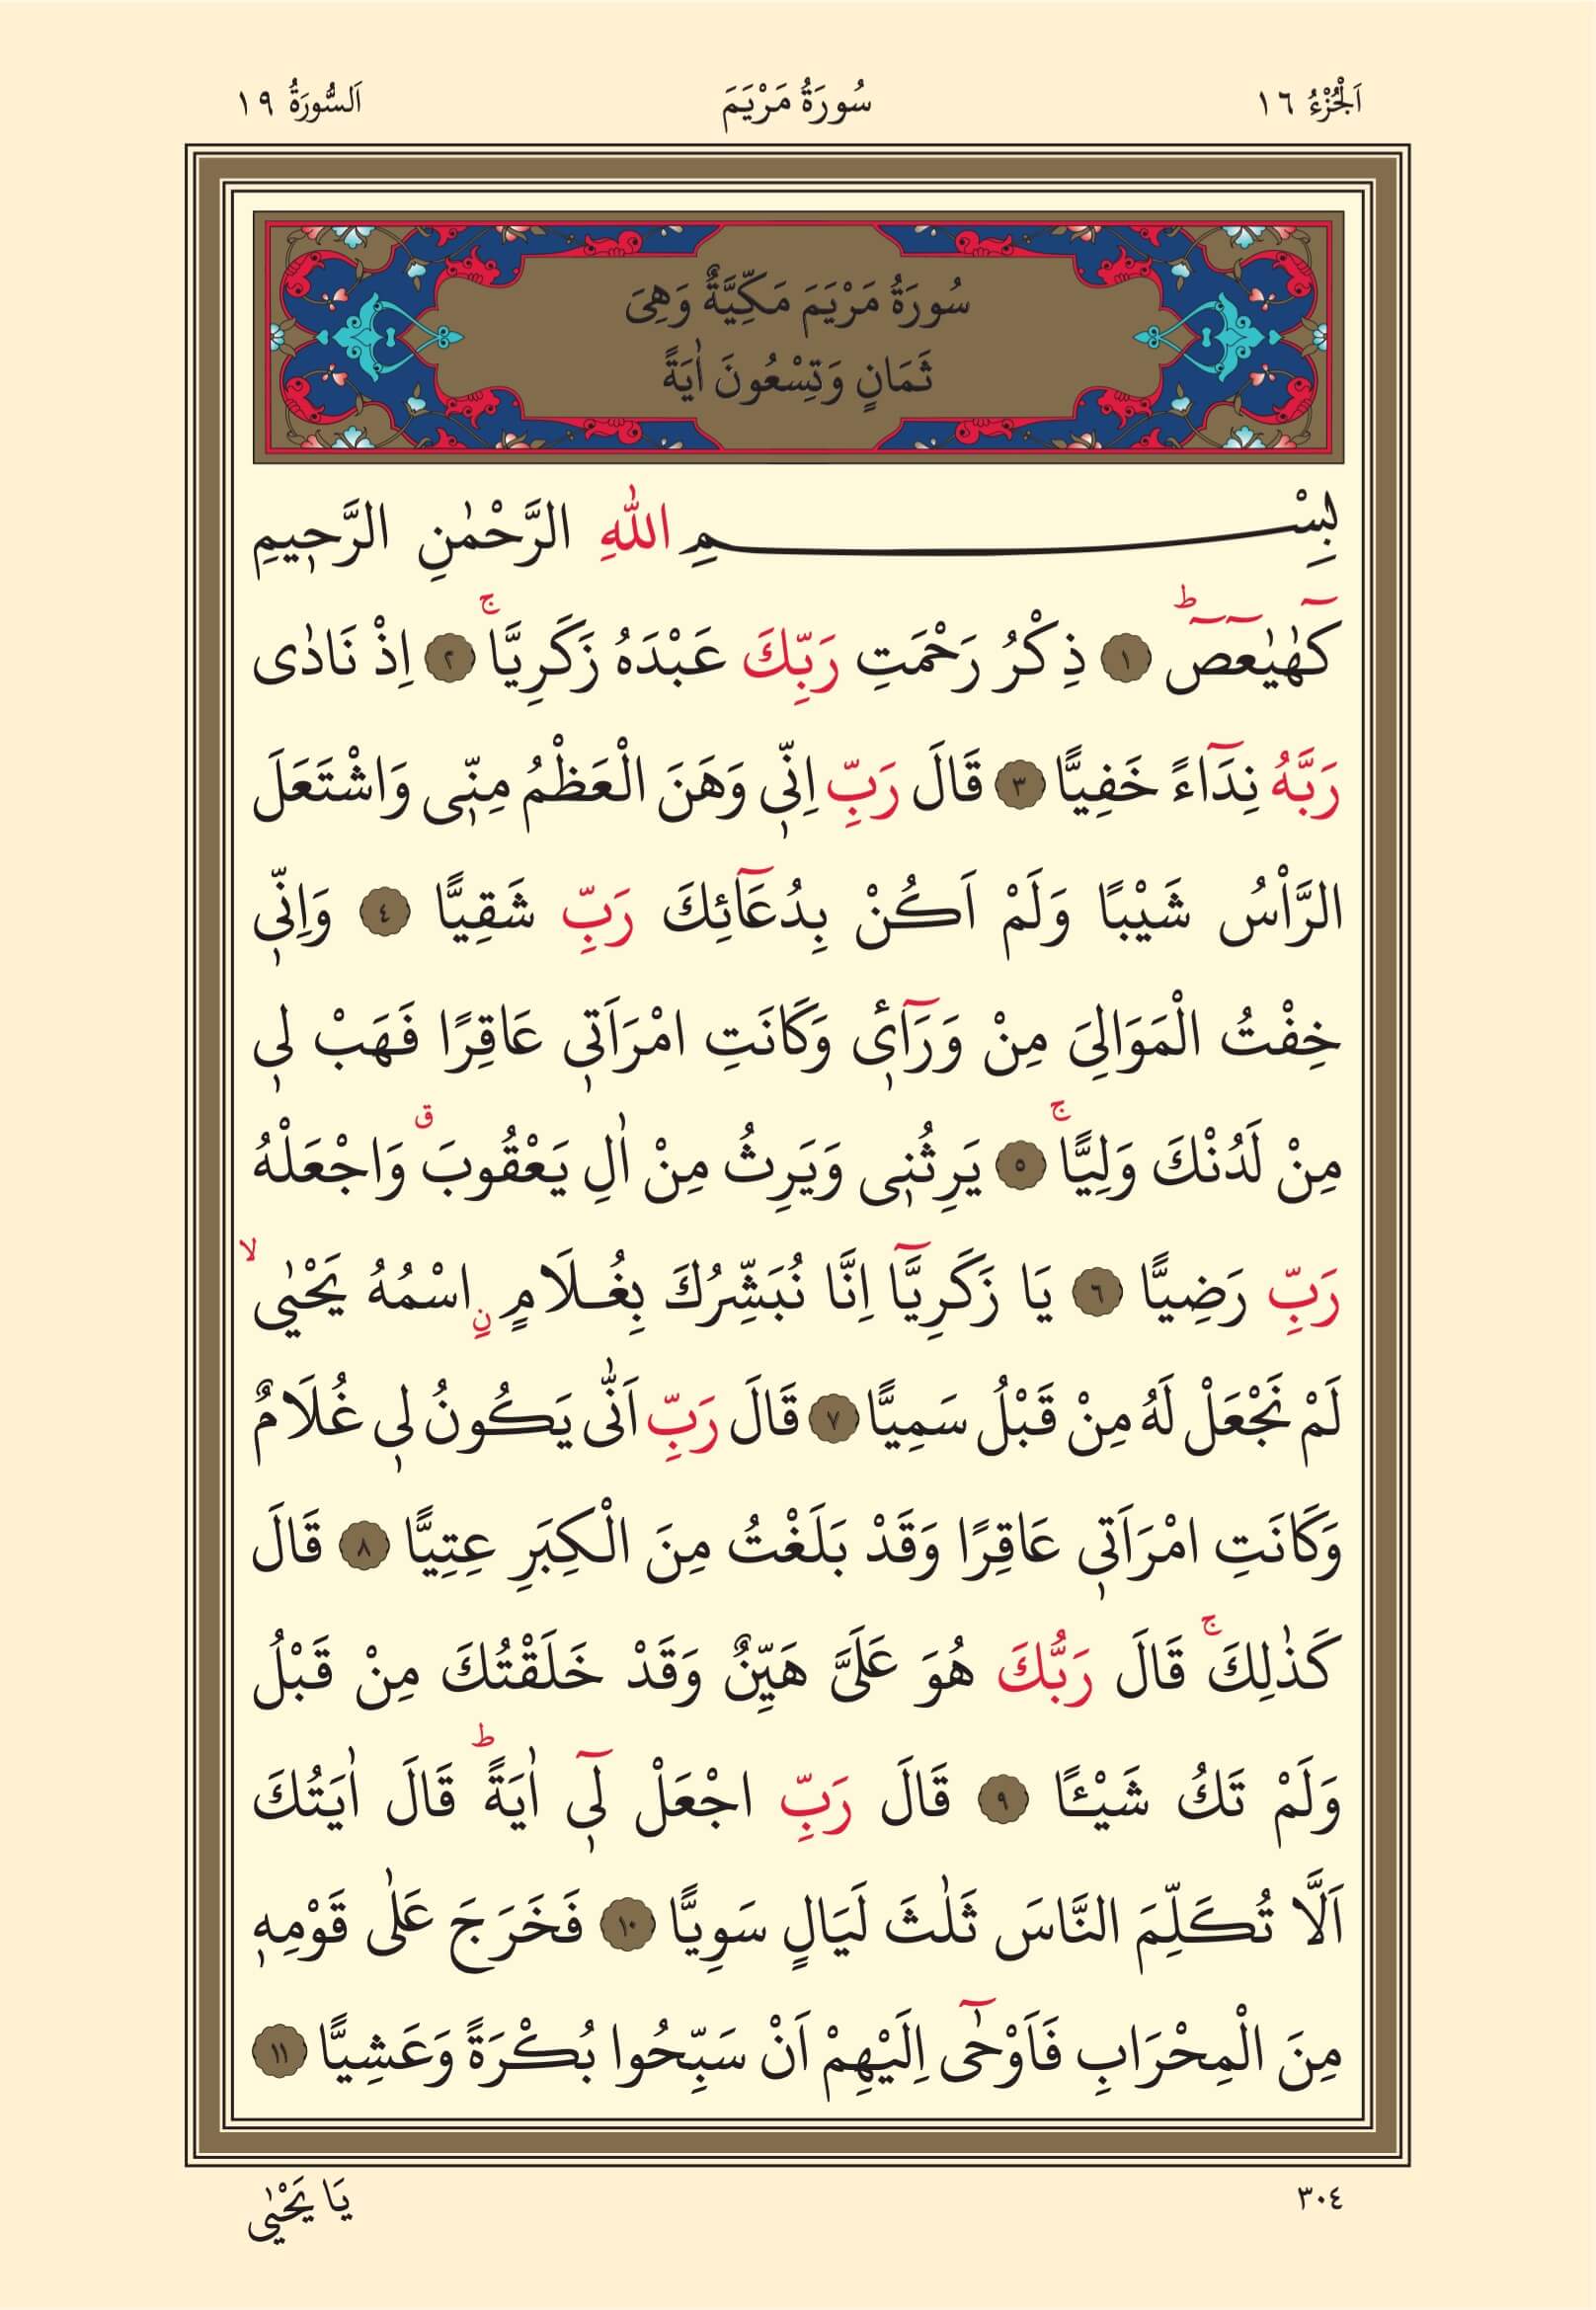 اَلْجُزْءُ ١٦
سُورَةُ مَرْيَمَ
اَلسُّورَةُ ١٩
سُورَةُ مَرْيَمَ مَكِّيَّةٌ وَهِيَ
ثَمَانٍ وَتِسْعُونَ اٰيَةً
بِسْــــــــــــمِ اللّٰهِ الرَّحْمٰنِ الرَّح۪يمِ
كٓهٰيٰعٓصٓۜ ١ ذِكْرُ رَحْمَتِ رَبِّكَ عَبْدَهُ زَكَرِيَّاۚ ٢ اِذْ نَادٰى
رَبَّهُ نِدَٓاءً خَفِيًّا ٣ قَالَ رَبِّ اِنّ۪ي وَهَنَ الْعَظْمُ مِنّ۪ي وَاشْتَعَلَ
الرَّأْسُ شَيْبًا وَلَمْ اَكُنْ بِدُعَٓائِكَ رَبِّ شَقِيًّا ٤ وَاِنّ۪ي
خِفْتُ الْمَوَالِيَ مِنْ وَرَٓاء۪ي وَكَانَتِ امْرَاَت۪ي عَاقِرًا فَهَبْ ل۪ي
مِنْ لَدُنْكَ وَلِيًّاۚ ٥ يَرِثُن۪ي وَيَرِثُ مِنْ اٰلِ يَعْقُوبَۗ وَاجْعَلْهُ
رَبِّ رَضِيًّا ٦ يَا زَكَرِيَّٓا اِنَّا نُبَشِّرُكَ بِغُـلَامٍ نِ اسْمُهُ يَحْيٰىۙ
لَمْ نَجْعَلْ لَهُ مِنْ قَبْلُ سَمِيًّا ٧ قَالَ رَبِّ اَنّٰى يَكُونُ ل۪ي غُلَامٌ
وَكَانَتِ امْرَاَت۪ي عَاقِرًا وَقَدْ بَلَغْتُ مِنَ الْكِبَرِ عِتِيًّا ٨ قَالَ
كَذٰلِكَۚ قَالَ رَبُّكَ هُوَ عَلَيَّ هَيِّنٌ وَقَدْ خَلَقْتُكَ مِنْ قَبْلُ
وَلَمْ تَكُ شَيْـًٔا ٩ قَالَ رَبِّ اجْعَلْ ل۪ٓي اٰيَةًۜ قَالَ اٰيَتُكَ
اَلَّا تُكَلِّمَ النَّاسَ ثَلٰثَ لَيَالٍ سَوِيًّا ١٠ فَخَرَجَ عَلٰى قَوْمِه۪
مِنَ الْمِحْرَابِ فَاَوْحٰٓى اِلَيْهِمْ اَنْ سَبِّحُوا بُكْرَةً وَعَشِيًّا ١١
٣٠٤
يَا يَحْيٰى